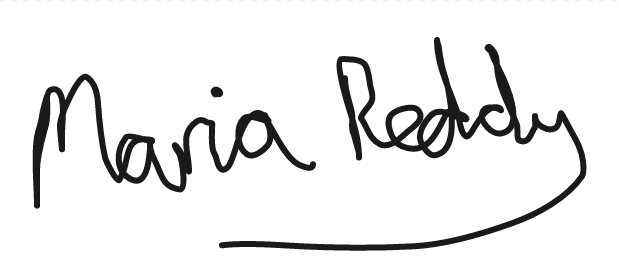 Maria Reddy